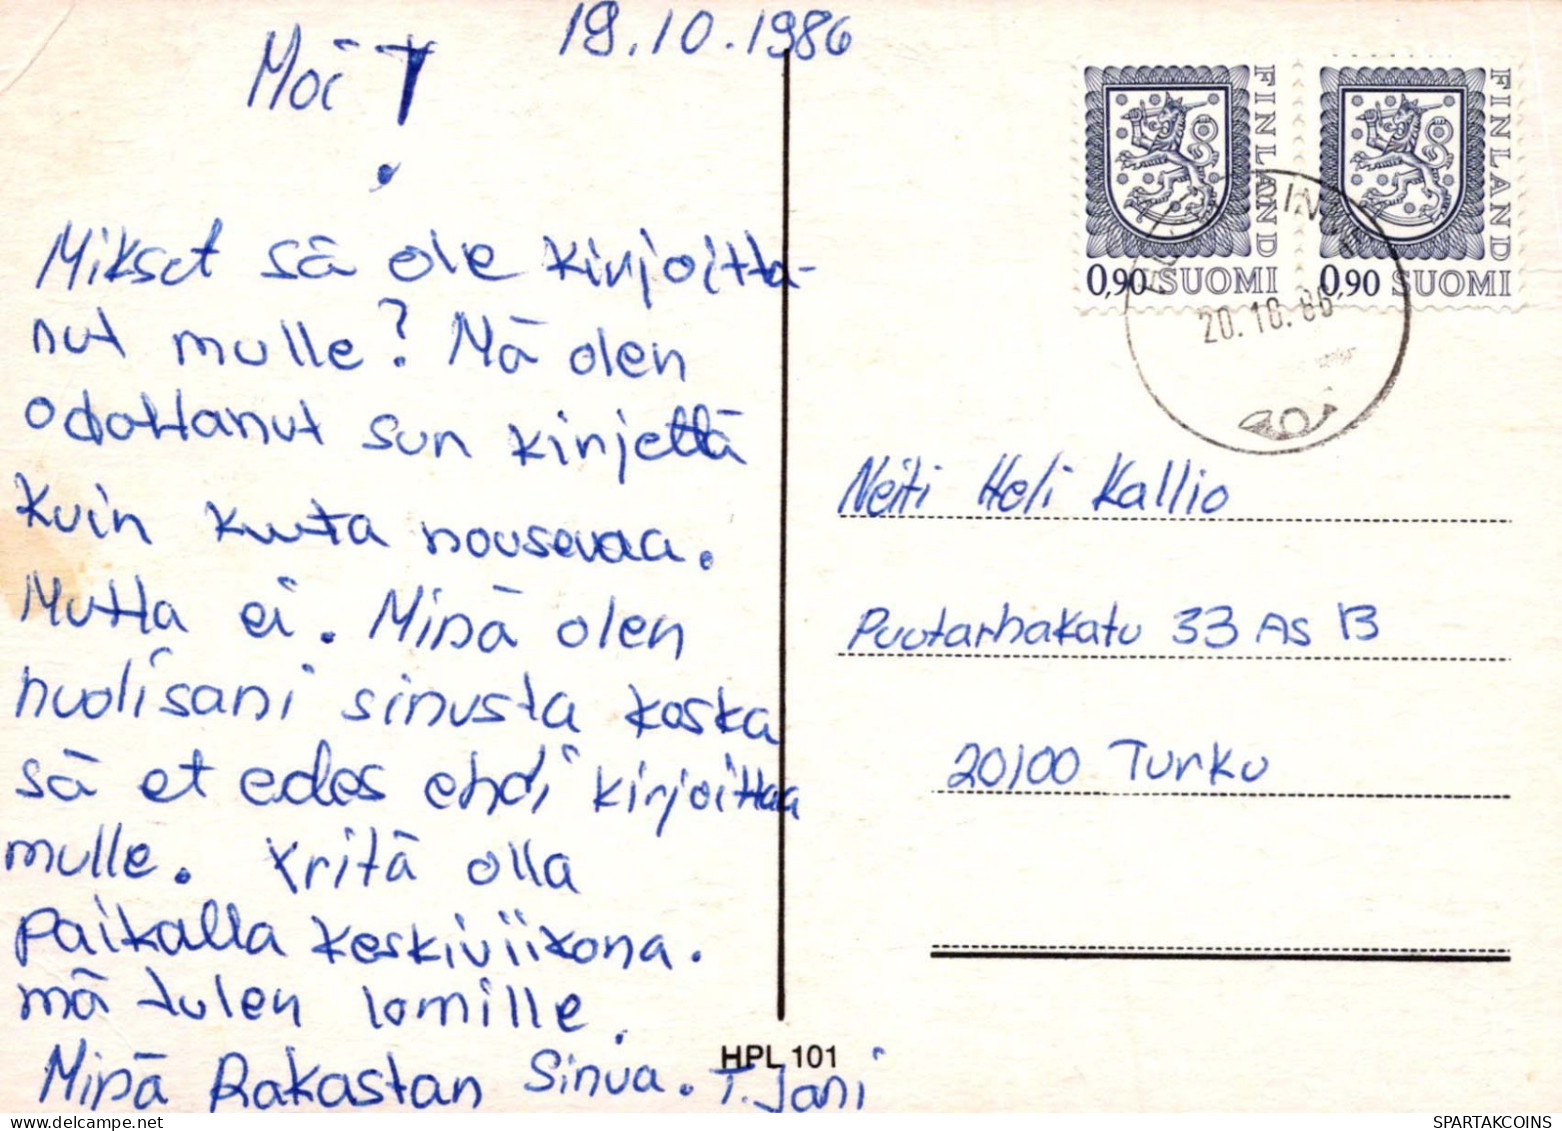 19.10.1986
Moi !
Mikset sä ole kirjoitta-
nut mulle? Mä olen
odottanut sun kirjettä
kuin kuuta nousevaa.
Mutta ei. Minä olen
huolisani sinusta koska
sä et edes ehdi kirjoittaa
mulle. Yritä olla
paikalla keskiviikona.
mä tulen lomille.
Minä Rakastan Sinua. T. Jani
FINLAND
0,90 SUOMI
FINLAND
0,90 SUOMI
20.10.86
Neiti Heli Kallio
Puutarhakatu 33 As 13
20100 Turku
HPL 101
SPARTAKCOINS